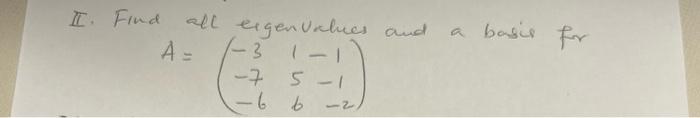 II. Find all eigenvalues and a basis for
A = (-3 1 -1
-7 5 -1
-6 6 -2)